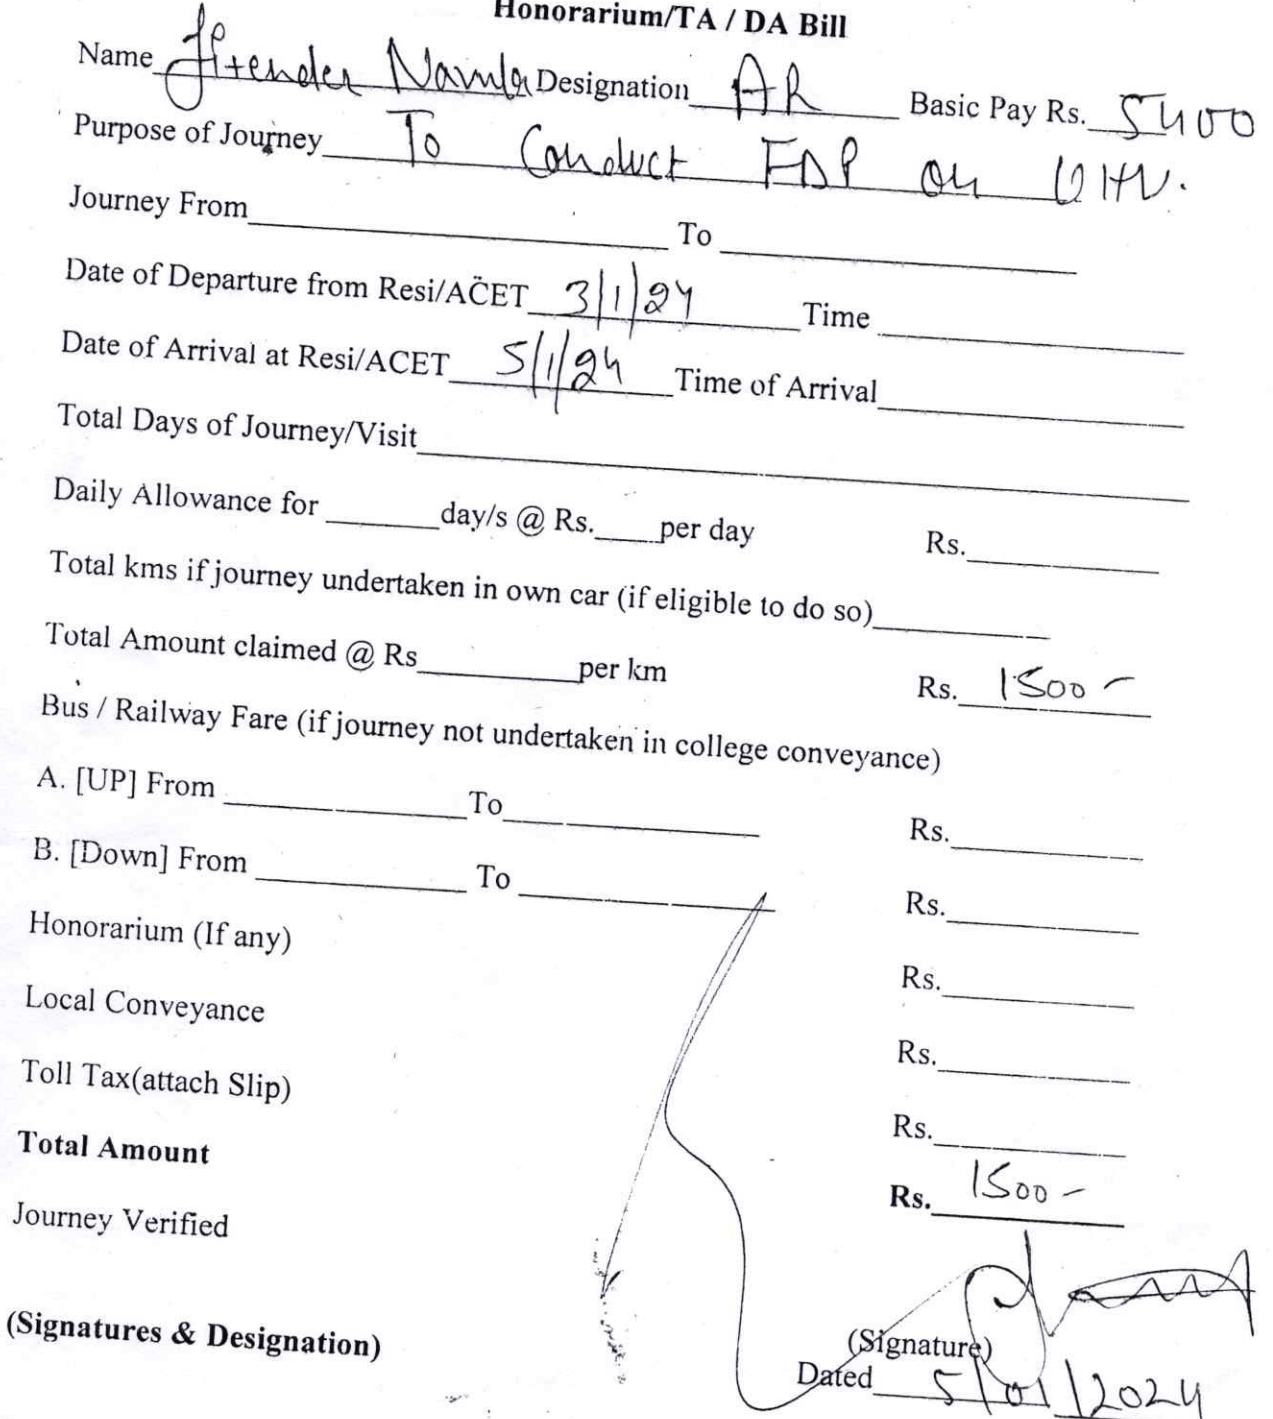 Honorarium/TA / DA Bill
Name Jitender Narula Designation AR Basic Pay Rs. 5400
Purpose of Journey To Conduct FDP on UHV.
Journey From To
Date of Departure from Resi/ACET 3/1/24 Time
Date of Arrival at Resi/ACET 5/1/24 Time of Arrival
Total Days of Journey/Visit
Daily Allowance for day/s @ Rs. per day Rs.
Total kms if journey undertaken in own car (if eligible to do so)
Total Amount claimed @ Rs per km Rs. 1500-
Bus / Railway Fare (if journey not undertaken in college conveyance)
A. [UP] From To Rs.
B. [Down] From To Rs.
Honorarium (If any) Rs.
Local Conveyance Rs.
Toll Tax(attach Slip) Rs.
Total Amount Rs. 1500-
Journey Verified
(Signatures & Designation) (Signature)
Dated 5/01/2024